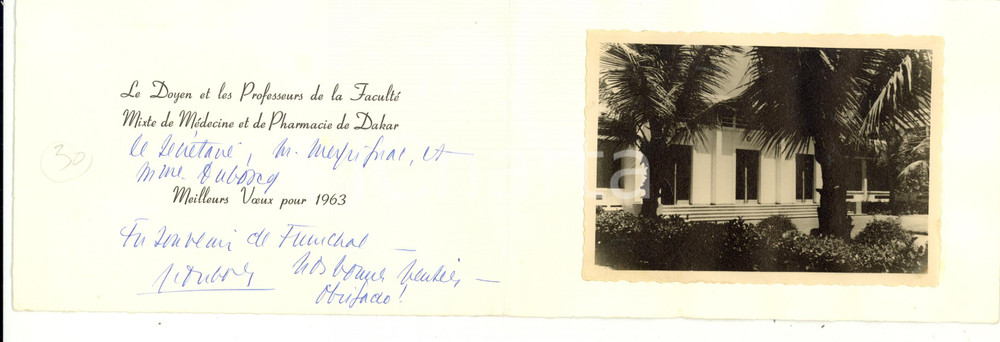 Le Doyen et les Professeurs de la Faculté
Mixte de Médecine et de Pharmacie de Dakar
le Secrétaire, M. et
Mme Duboscq
30
Meilleurs Vœux pour 1963
En souvenir de Funchal —
Nos bonnes pensées —
Obrigado!